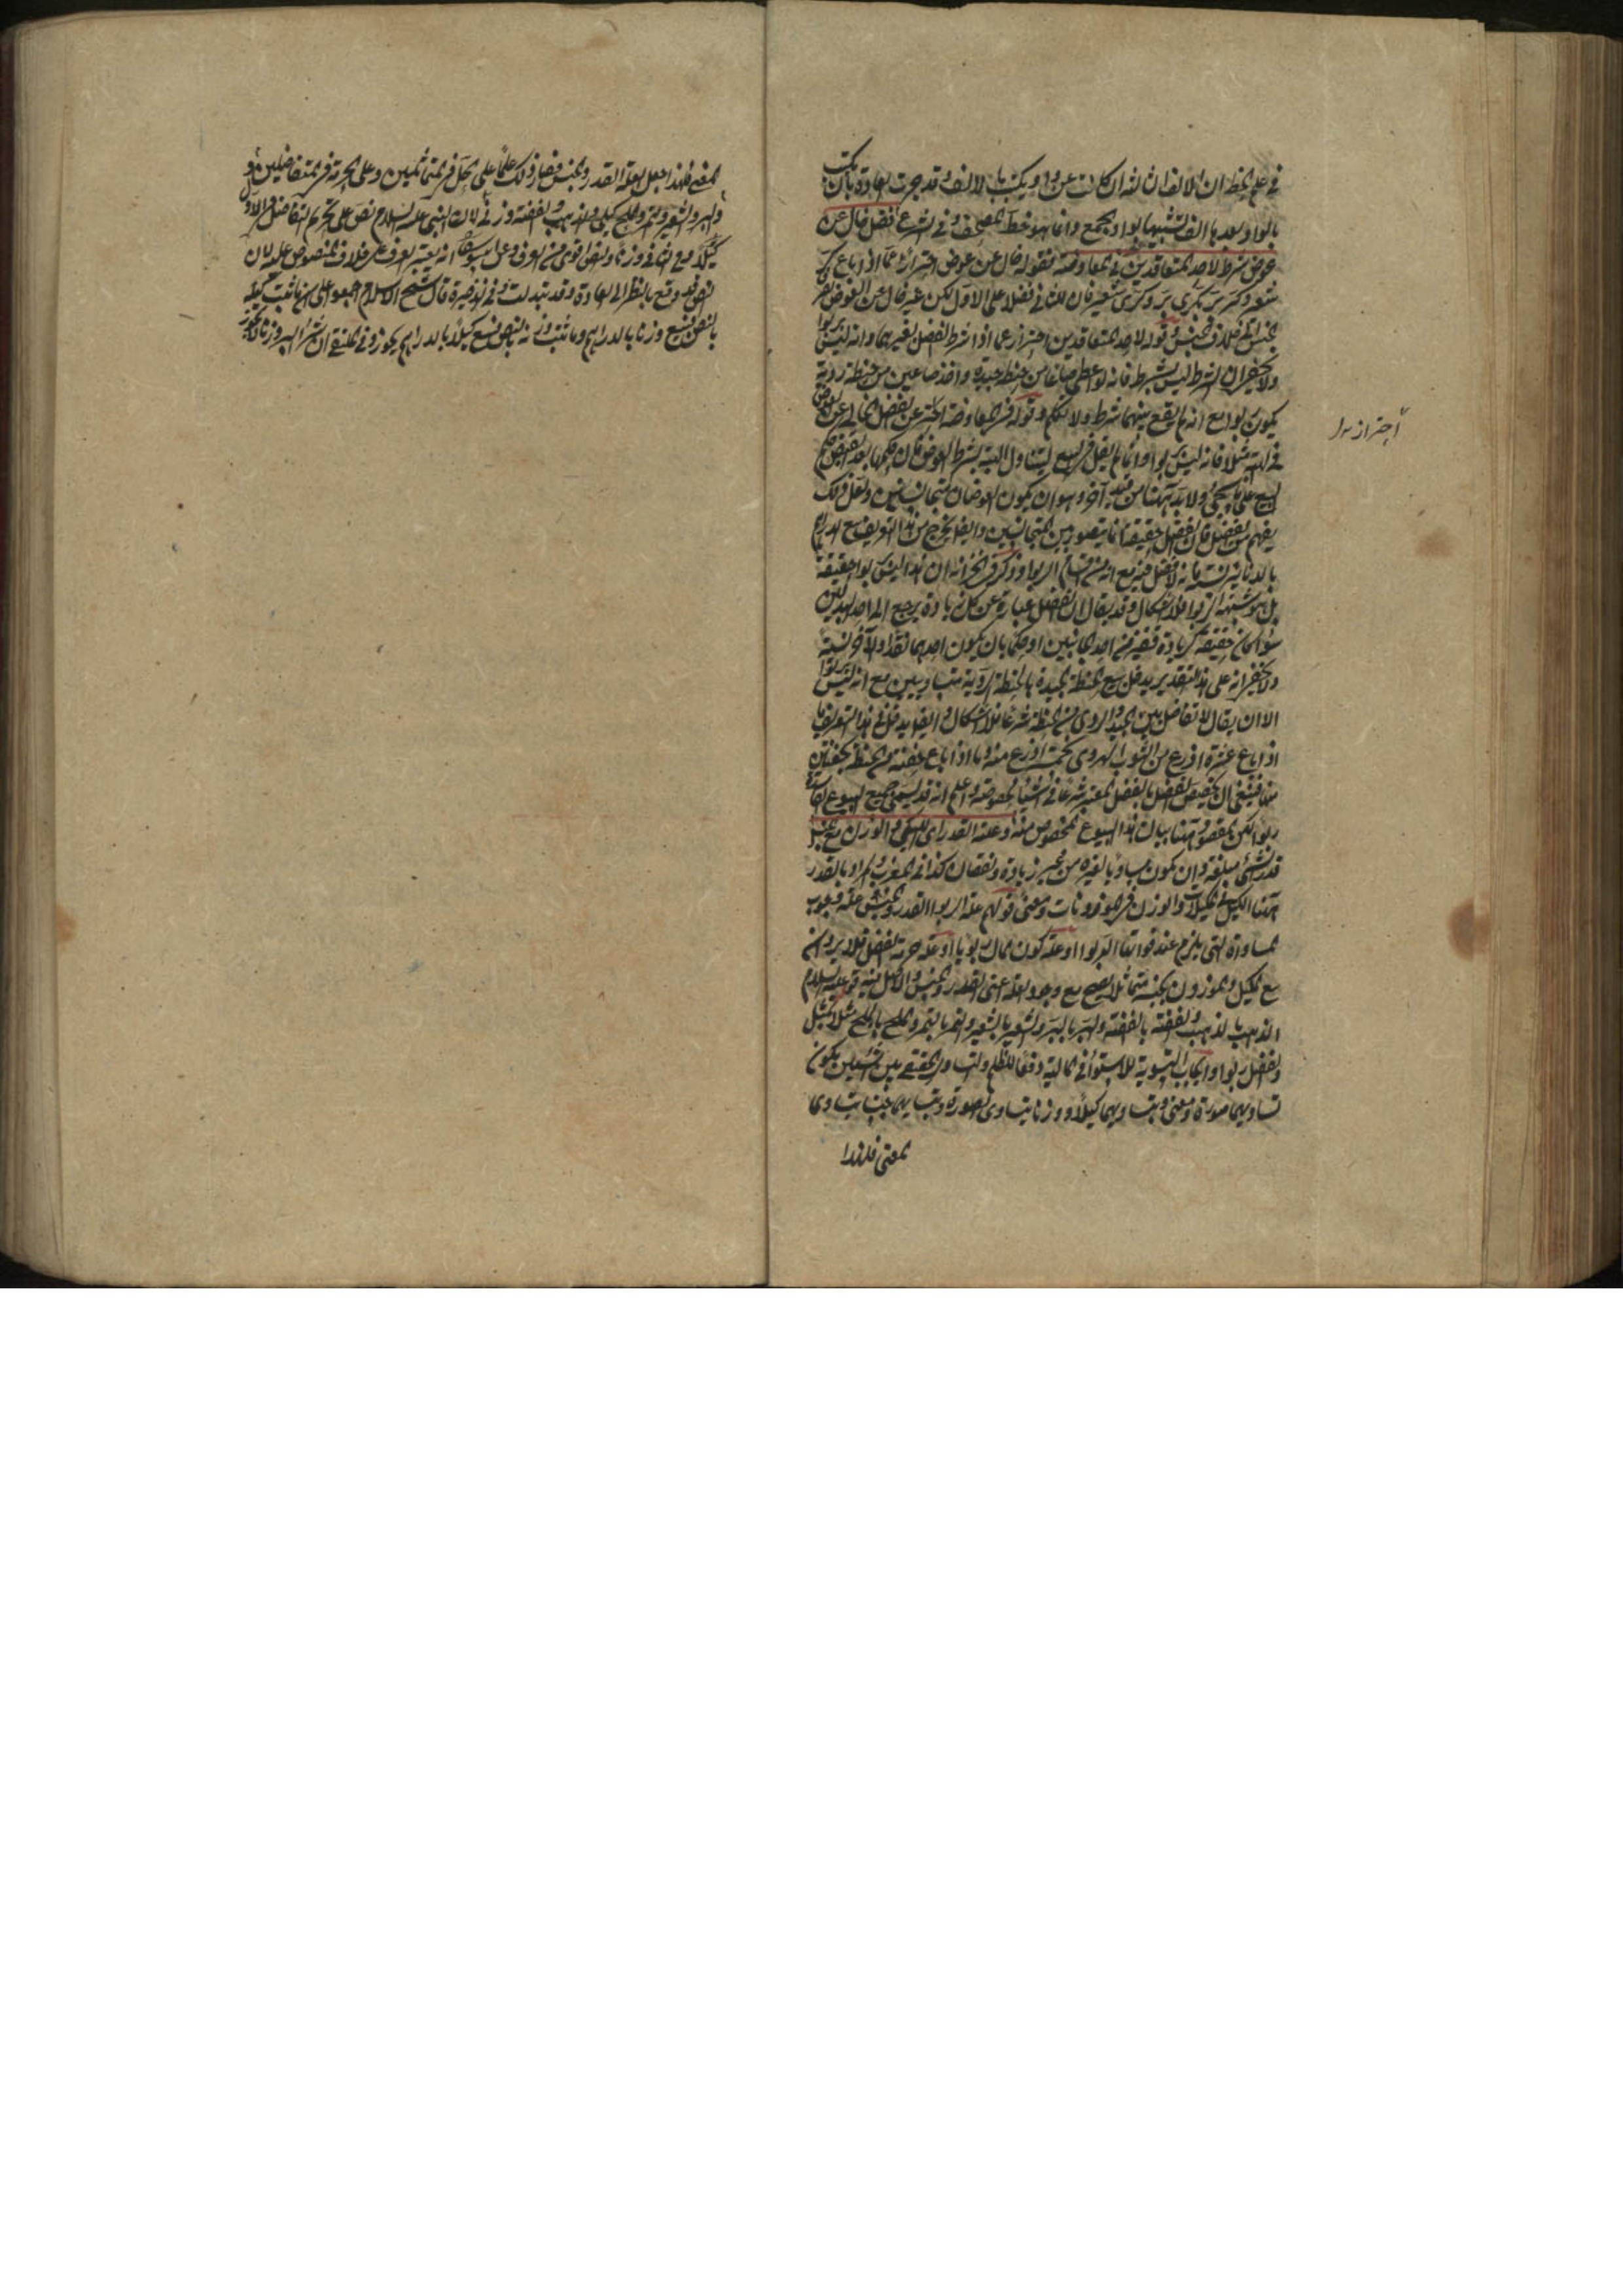 في علم الخط ان الالف الثالثة ان كانت عن واو يكتب بالالف وقد جرت العادة بان يكتب
بالواو وبعدها الف تشبيها بواو الجمع وانما هو خط المصحف وفي الشرع فضل خال عن
عوض شرط لاحد المتعاقدين في المعاوضة فقوله خال عن عوض احتراز عما اذا باع كر
شعير وكر بر بكري بر وكري شعير فان للثاني فضلا على الاول لكن غير خال عن العوض لصرف
الجنس الى خلاف الجنس وقوله لاحد المتعاقدين احتراز عما اذا شرط الفضل لغيرهما وانه ليس بربوا
ولا يخفى ان الشرط ليس بشرط فانه لو اعطى صاعا من حنطة جيدة واخذ صاعين من حنطة ردية
يكون ربوا مع انه لم يقع بينهما شرط ولا تكلم وقوله في المعاوضة احتراز عن الفضل الخالي عن العوض
في الهبة مثلا فانه ليس بربوا وانما لم يقل في البيع ليتناول الهبة بشرط العوض فان حكمها بعد القبض حكم
البيع على ما يجئ ولا بد ههنا من قيد آخر وهو ان يكون العوضان متجانسين ولعل ذلك
يفهم من الفضل فان الفضل حقيقة انما يتصور بين المتجانسين وايضا يخرج من هذا التعريف بيع الدراهم
بالدنانير نسئة فانه لا فضل فيه مع انه من اقسام الربوا وذكر في الخزانة ان هذا ليس بربوا حقيقة
بل هو شبهة الربوا فلا اشكال وقد يقال ان الفضل عبارة عن كل زيادة يرجع الى احد البدلين
سواء كان حقيقة كزيادة قفيز في احد الجانبين او حكما بان يكون احدهما نقدا والآخر نسئة
ولا يخفى انه على هذا التقدير يدخل بيع الحنطة الجيدة بالحنطة الردية متساويين مع انه ليس بربوا
الا ان يقال لا تفاضل بين الجيد والردي في الحنطة شرعا فلا اشكال وايضا يدخل في هذا التعريف ما
اذا باع عشرة اذرع من الثوب الهروي بخمسة اذرع منه وما اذا باع حفنة من الحنطة بحفنتين
منها فينبغي ان يخصص الفضل بالفضل المعتبر شرعا في اشياء مخصوصة واعلم انه قد يسمى جميع البيوع الفاسدة
ربوا لكن المقصود ههنا بيان هذا البيوع المخصوص منه وعلته القدر اي الكيل والوزن مع الجنس
قدر الشئ مبلغه وان يكون مساويا لغيره من غير زيادة ونقصان كذا في المغرب والمراد بالقدر
ههنا الكيل في المكيلات والوزن في الموزونات ومعنى قولهم علة الربوا القدر والجنس علة وجوب
المساواة التي يلزم عند فواتها الربوا او علة كون المال ربويا او علة حرمة الفضل فلا يرد ان
بيع المكيل والموزون بجنسه متماثلا يصح مع وجود العلة اعني القدر والجنس والاصل فيه قوله عليه السلام
الذهب بالذهب والفضة بالفضة والبر بالبر والشعير بالشعير والتمر بالتمر والملح بالملح مثلا بمثل
والفضل ربوا وايجاب التسوية للاستواء في المالية دفعا للظلم والتساوي الحقيقي بين الشيئين يكون
بتساويهما صورة ومعنى وبتساويهما كيلا ووزنا يتساوى الصورة وبتساويهما جنسا يتساويا
المعنى فلهذا
احتراز
المعنى فلهذا جعل العلة القدر والجنس فصار ذلك علما على الحل في المتماثلين وعلى الحرمة في المتفاضلين
والبر والشعير والتمر والملح كيلي والذهب والفضة وزني لان النبي عليه السلام نص على تحريم التفاضل في الاول
كيلا وفي الثاني وزنا والنص اقوى من العرف وعن ابي يوسف انه يعتبر العرف على خلاف المنصوص عليه لان
النص قد وقع بالنظر الى العادة وقد تبدلت وفي الذخيرة قال شيخ الاسلام اجمعوا على ان ما ثبت كيله
بالنص يبيع وزنا بالدراهم وما ثبت وزنه بالنص يبيع كيلا بالدراهم يجوز وفي المنتقى ان شراء البر وزنا لا يجوز